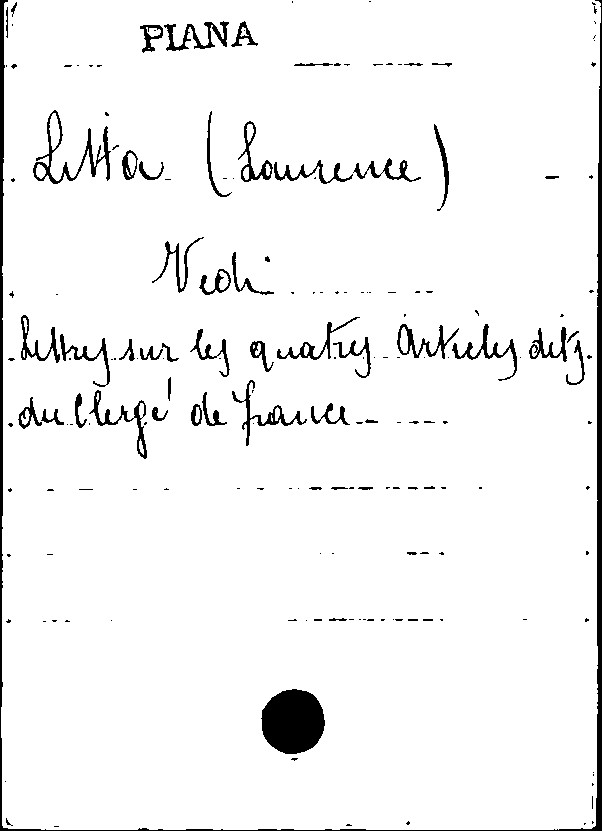 PIANA
Litta (Laurence)
Vedi
Lettres sur les quatres Articles dits
du Clergé de france